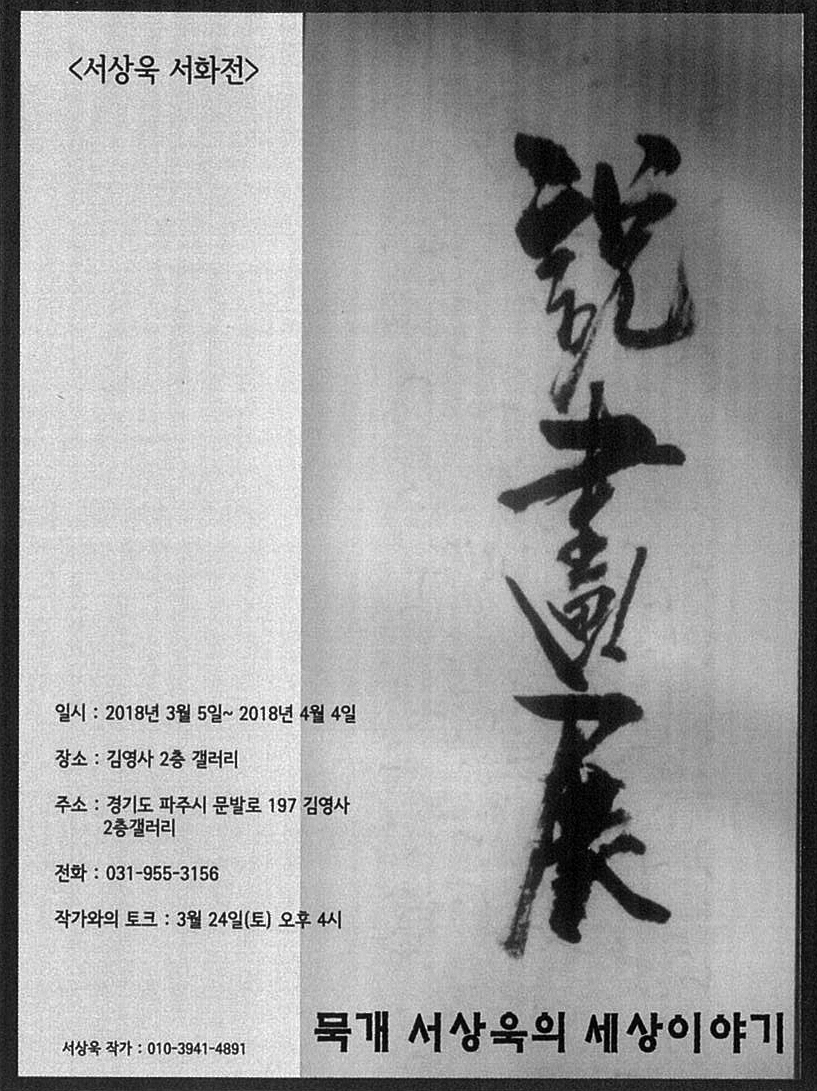 <서상욱 서화전>
說畫展
일시 : 2018년 3월 5일~ 2018년 4월 4일
장소 : 김영사 2층 갤러리
주소 : 경기도 파주시 문발로 197 김영사
2층갤러리
전화 : 031-955-3156
작가와의 토크 : 3월 24일(토) 오후 4시
서상욱 작가 : 010-3941-4891
묵개 서상욱의 세상이야기